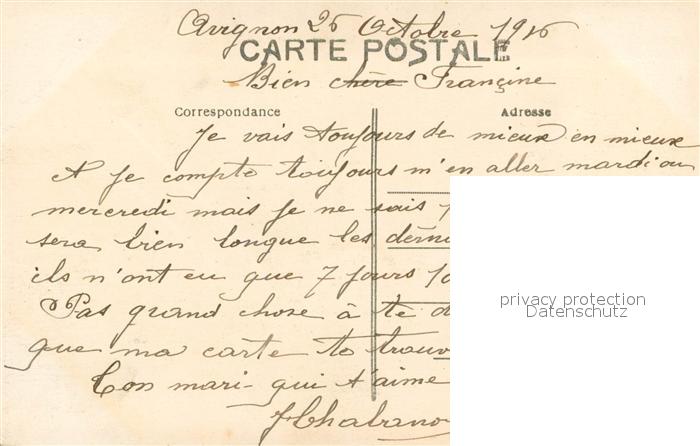 Avignon 25 Octobre 1916
CARTE POSTALE
Bien chère Françine
Correspondance
Adresse
Je vais toujours de mieux en mieux
et je compte toujours m'en aller mardi ou
mercredi mais je ne sais
sera bien longue les derni
ils n'ont eu que 7 jours
Pas grand chose à te d
que ma carte te trouv
Ton mari qui t'aime
privacy protection
Datenschutz